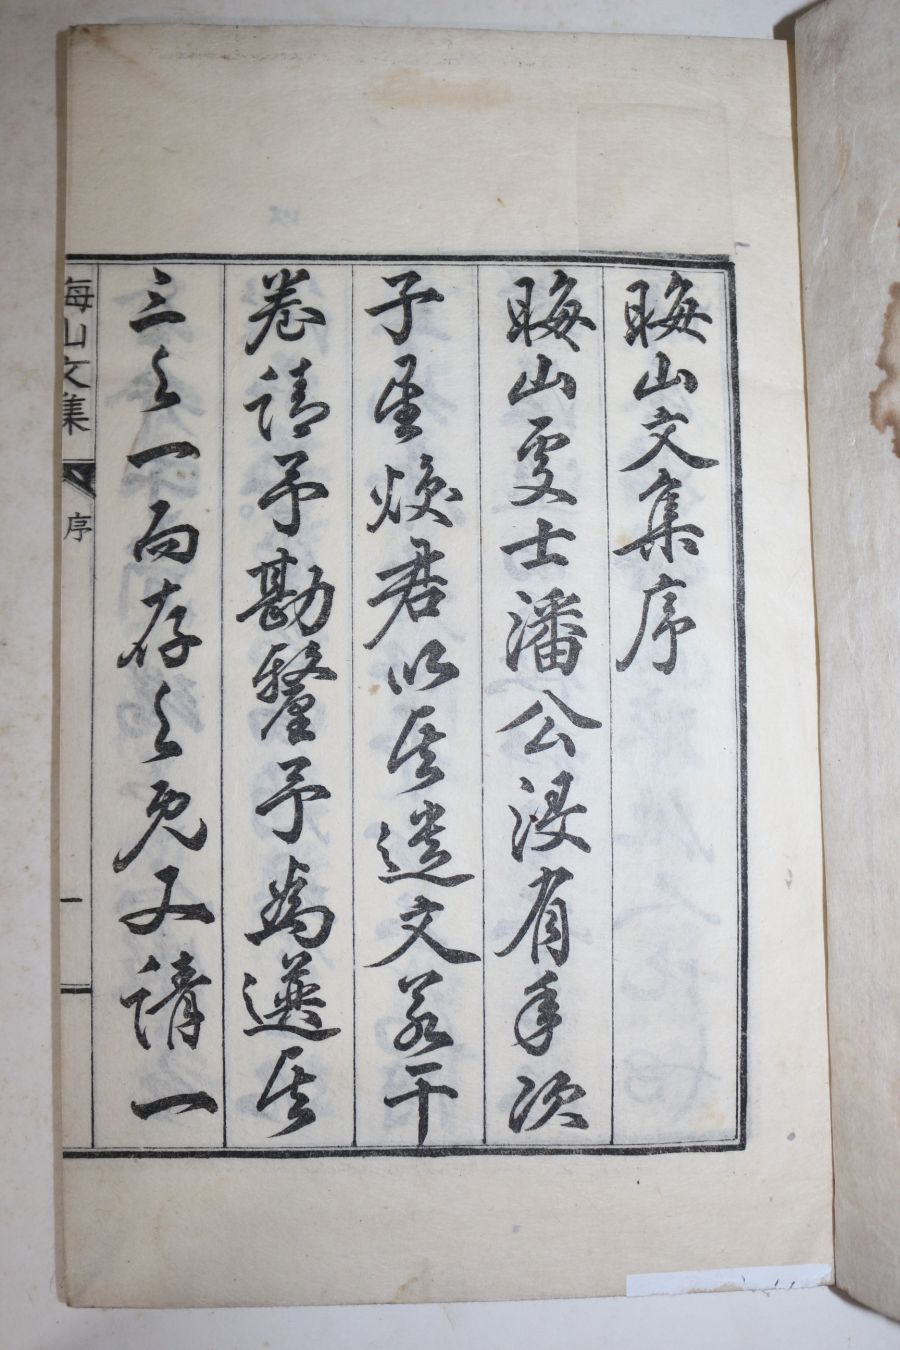 晦山文集序
晦山處士潘公浸有年次
子聖煥君以其遺文若干
卷請予勘釐予爲選其
三之一而存之免又請一
晦山文集
序
一